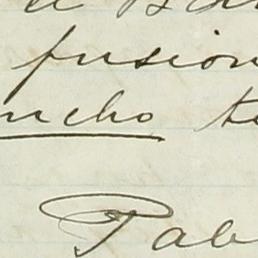 fusion
ucho te
Pab